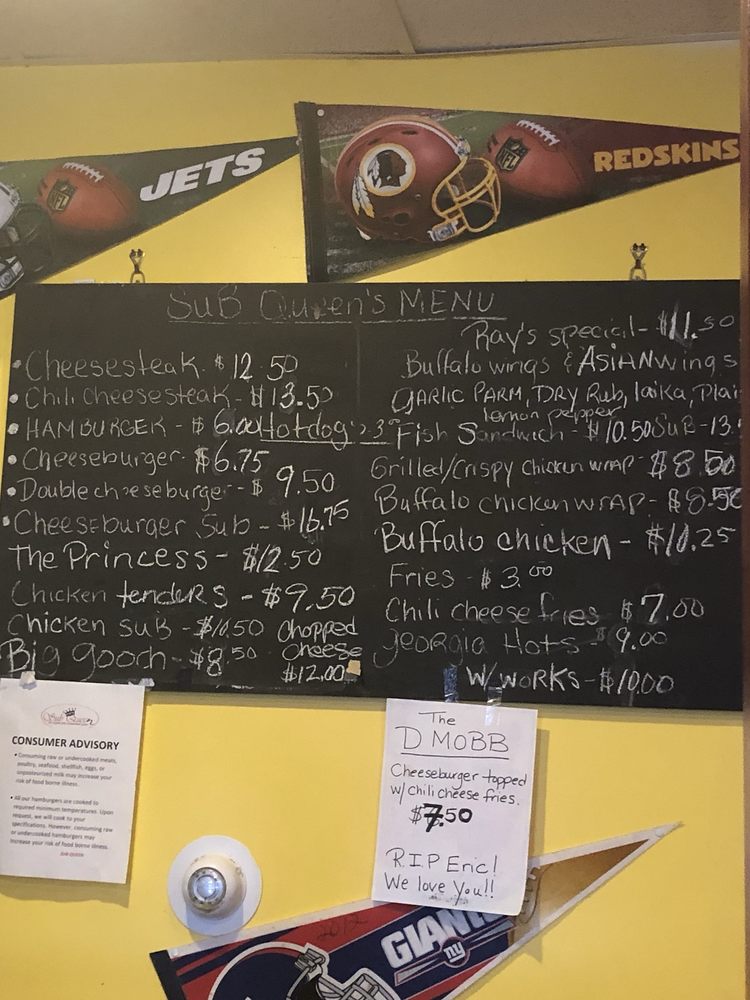 JETS
NFL
REDSKINS
NFL
SUB Queen's MENU
• Cheesesteak $12.50
• Chili cheesesteak - $13.50
• HAMBURGER - $6.00 Hotdog's 3.00
• Cheeseburger - $6.75
• Double cheeseburger - $ 9.50
• Cheeseburger Sub - $16.75
The Princess - $12.50
Chicken tenders - $9.50
Chicken sub - $10.50
Big Gooch - $8.50
Chopped
Cheese
$12.00
Ray's special - $11.50
Buffalo wings & ASIAN wings
GARLIC PARM, DRY Rub,
lemon pepper
Fish Sandwich - $10.50 SUB - 13.
Grilled/Crispy chicken wrap - $8.50
Buffalo chicken wrap - $8.50
Buffalo chicken - $10.25
Fries - $3.00
Chili cheese fries $7.00
Georgia Hots - $9.00
W/WORKS - $10.00
Sub Queen
CONSUMER ADVISORY
• Consuming raw or undercooked meats,
poultry, seafood, shellfish, eggs, or
unpasteurized milk may increase your
risk of food borne illness.
• All our hamburgers are cooked to
required minimum temperatures. Upon
request, we will cook to your
specifications. However, consuming raw
or undercooked hamburgers may
increase your risk of food borne illness.
SUB QUEEN
The
D MOBB
Cheeseburger topped
w/ chili cheese fries.
$7.50
R.I.P Eric!
We love you!!
2012
GIANTS
ny